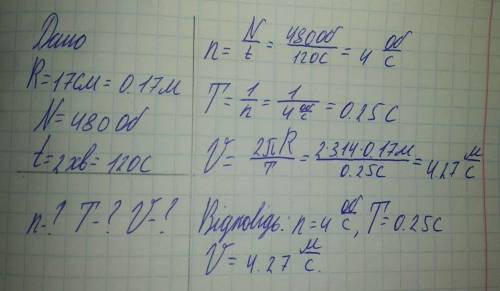 Дано
R=17см=0.17м
N=480об
t=2хв=120с
n-? T-? V-?
n=N/t=480об/120с=4 об/с
T=1/n=1/4 об/с=0.25с
V=2πR/T=2·3.14·0.17м/0.25с=4.27 м/с
Відповідь: n=4 об/с, T=0.25с
V=4.27 м/с.